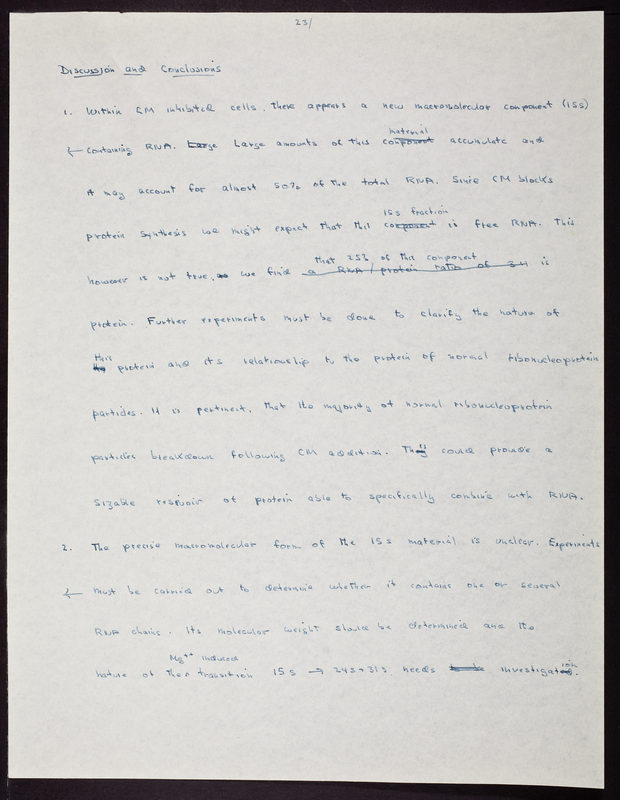 23/
Discussion and Conclusions
1. Within CM inhibited cells, there appears a new macromolecular component (15s)
containing RNA. Large Large amounts of this component material accumulate and
it may account for almost 50% of the total RNA. Since CM blocks
protein synthesis we might expect that this component 15s fraction is free RNA. This
however is not true, as we find a RNA/protein ratio of 3:1 that 25% of this component is
protein. Further experiments must be done to clarify the nature of
this protein and its relationship to the protein of normal ribonucleoprotein
particles. It is pertinent, that the majority of normal ribonucleoprotein
particles breakdown following CM addition. This could provide a
sizable resevoir of protein able to specifically combine with RNA.
2. The precise macromolecular form of the 15s material is unclear. Experiments
must be carried out to determine whether it contains one or several
RNA chains. Its molecular weight should be determined and the
nature of the Mg++ induced transition 15s → 24s+31s needs to be investigation.